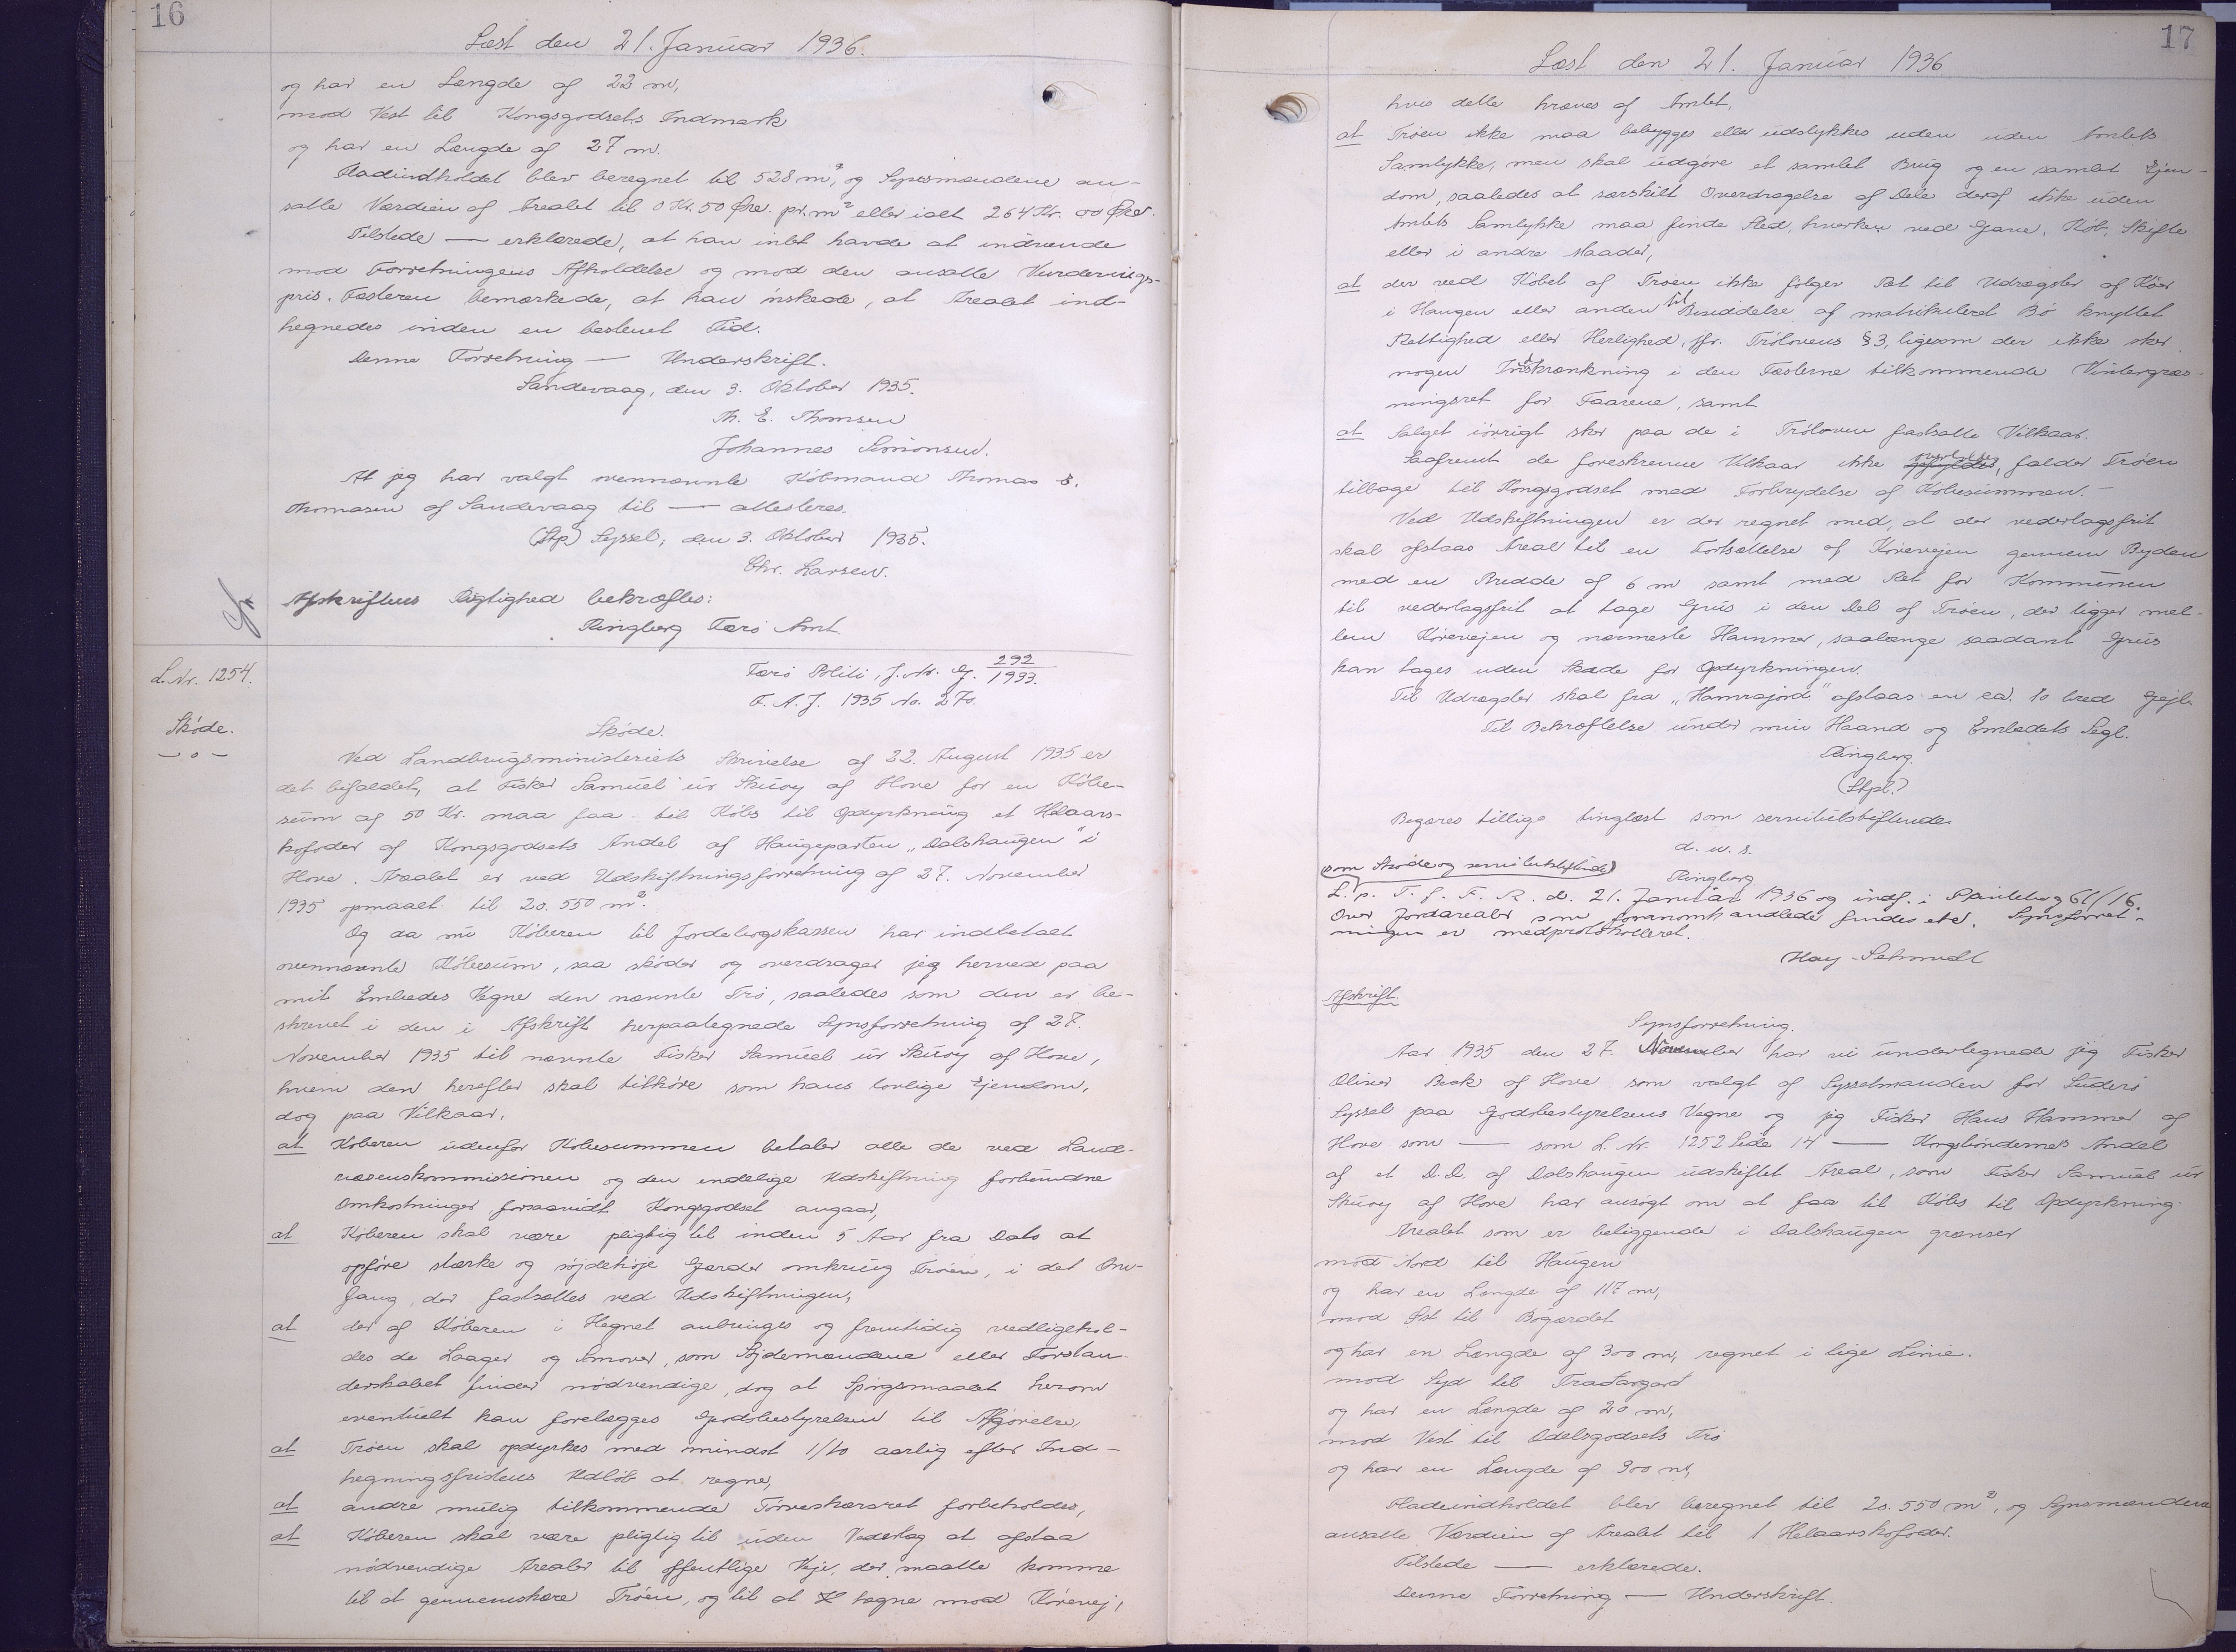 16
Læst den 21. Januar 1936.
og har en Længde af 22 m,
mod Vest til Kongsgodsets Indmark
og har en Længde af 27 m.
Fladindholdet blev beregnet til 528 m², og Synsmændene an-
satte Værdien af Arealet til 0 Kr. 50 Øre. pr. m² eller ialt 264 Kr. 00 Øre.
Tilstede — erklærede, at han intet havde at indvende
mod Forretningens Afholdelse og mod den ansatte Vurderings-
pris. Fæsteren bemærkede, at han ønskede, at Arealet ind-
hegnedes inden en bestemt Tid.
Denne Forretning — Underskrift.
Sandevaag, den 3. Oktober 1935.
Th. E. Thomsen
Johannes Simonsen.
At jeg har valgt ovennævnte Købmand Thomas E.
Thomasen af Sandevaag til — attesteres.
(Stp) Syssel, den 3. Oktober 1935.
Chr. Larsen.
Afskriftens Rigtighed bekræftes:
Ringberg Færø Amt.
L. Nr. 1254.
Skøde.
— o —
Færø Politi, J. Nr. G. 292/1933.
F. A. J. 1935 No. 270.
Skøde.
Ved Landbrugsministeriets Skrivelse af 22. August 1935 er
det bifaldet, at Fisker Samuel úr Skúvoy af Hove for en Købe-
sum af 50 Kr. maa faa til Købs til Opdyrkning et Helaars-
kofoder af Kongsgodsets Andel af Haugeparten „Dalshaugen" i
Hove. Arealet er ved Udskiftningsforretning af 27. November
1935 opmaalt til 20.550 m².
Og da nu Køberen til Jordebogskassen har indbetalt
ovennævnte Købesum, saa skøder og overdrager jeg herved paa
mit Embedes Vegne den nævnte Trø, saaledes som den er be-
skrevet i den i Afskrift herpaategnede Synsforretning af 27.
November 1935 til nævnte Fisker Samuel úr Skúvoy af Hove,
hvem den herefter skal tilhøre som hans lovlige Ejendom,
dog paa Vilkaar,
at Køberen udenfor Købesummen betaler alle de ved Land-
væsenskommissionen og den endelige Udskiftning forbundne
Omkostninger forsaavidt Kongsgodset angaar,
at Køberen skal være pligtig til inden 5 Aar fra Dato at
opføre stærke og søjdehøje Gærder omkring Trøen, i det Om-
fang, der fastsættes ved Udskiftningen,
at der af Køberen i Hegnet anbringes og fremtidig vedligehol-
des de Laager og Smover, som Søjdemændene eller Forstan-
derskabet finder nødvendige, dog at Spørgsmaalet herom
eventuelt kan forelægges Godsbestyrelsen til Afgørelse,
at Trøen skal opdyrkes med mindst 1/10 aarlig efter Ind-
hegningsfristens Udløb at regne,
at andre mulig tilkommende Tørveskærsret forbeholdes,
at Køberen skal være pligtig til uden Vederlag at afstaa
nødvendige Arealer til offentlige Veje, der maatte komme
til at gennemskære Trøen, og til at hegne mod Kørevej,
17
Læst den 21. Januar 1936
hvis dette kræves af Amtet,
at Trøen ikke maa bebygges eller udstykkes uden uden Amtets
Samtykke, men skal udgøre et samlet Brug og en samlet Ejen-
dom, saaledes at særskilt Overdragelse af Dele deraf ikke uden
Amtets Samtykke maa finde Sted, hverken ved Gave, Køb, Skifte
eller i andre Maader,
at der ved Købet af Trøen ikke følger Ret til Udrægster af Køer
i Haugen eller anden til Besiddelse af matrikuleret Bø knyttet
Rettighed eller Herlighed, jfr. Trølovens § 3, ligesom der ikke sker
nogen Indskrænkning i den Fæsterne tilkommende Vintergræs-
ningsret for Faarene, samt
at Salget iøvrigt sker paa de i Trøloven fastsatte Vilkaar.
Saafremt de foreskrevne Vilkaar ikke overholdes, falder Trøen
tilbage til Kongsgodset med Forbrydelse af Købesummen.—
Ved Udskiftningen er der regnet med, at der vederlagsfrit
skal afstaas Areal til en Fortsættelse af Kørevejen gennem Bygden
med en Bredde af 6 m samt med Ret for Kommunen
til vederlagsfrit at tage Grus i den Del af Trøen, der ligger mel-
lem Kørevejen og nærmeste Hammer, saalænge saadant Grus
kan tages uden Skade for Opdyrkningen.
Til Udrægster skal fra „Hamrajørd" afstaas en ca. 10 bred Gejl.
Til Bekræftelse under min Haand og Embedets Segl.
Ringberg.
(Stpl.)
Begæres tillige tinglæst som servitutstiftende
d. u. s.
Ringberg
(som Skøde og servitutstiftende)
L. p. T. f. F. R. d. 21. Januar 1936 og indf. i Pantebog 61/16.
Over Jordarealer som forannævnt andledes findes etc. Synsforret-
ningen er medprotokolleret.
Hay-Schmidt
Afskrift.
Synsforretning.
Aar 1935 den 27. November har vi undertegnede jeg Fisker
Oliver Beck af Hove som valgt af Sysselmanden for Suderø
Syssel paa Godsbestyrelsens Vegne og jeg Fisker Hans Hammer af
Hove som — som L. Nr. 1252 Side 14 — Kongsbøndernes Andel
af et D.D. af Dalshaugen udskiftet Areal, som Fisker Samuel úr
Skúvoy af Hove har ansøgt om at faa til Købs til Opdyrkning.
Arealet som er beliggende i Dalshaugen grænser
mod Nord til Haugen
og har en Længde af 117 m,
mod Øst til Bøgærdet
og har en Længde af 300 m, regnet i lige Linie.
mod Syd til Tradargard
og har en Længde af 20 m,
mod Vest til Odelsgodsets Trø
og har en Længde af 300 m,
Fladeindholdet blev beregnet til 20.550 m², og Synsmændene
ansatte Værdien af Arealet til 1 Helaarskofoder.
Tilstede — erklærede.
Denne Forretning — Underskrift.